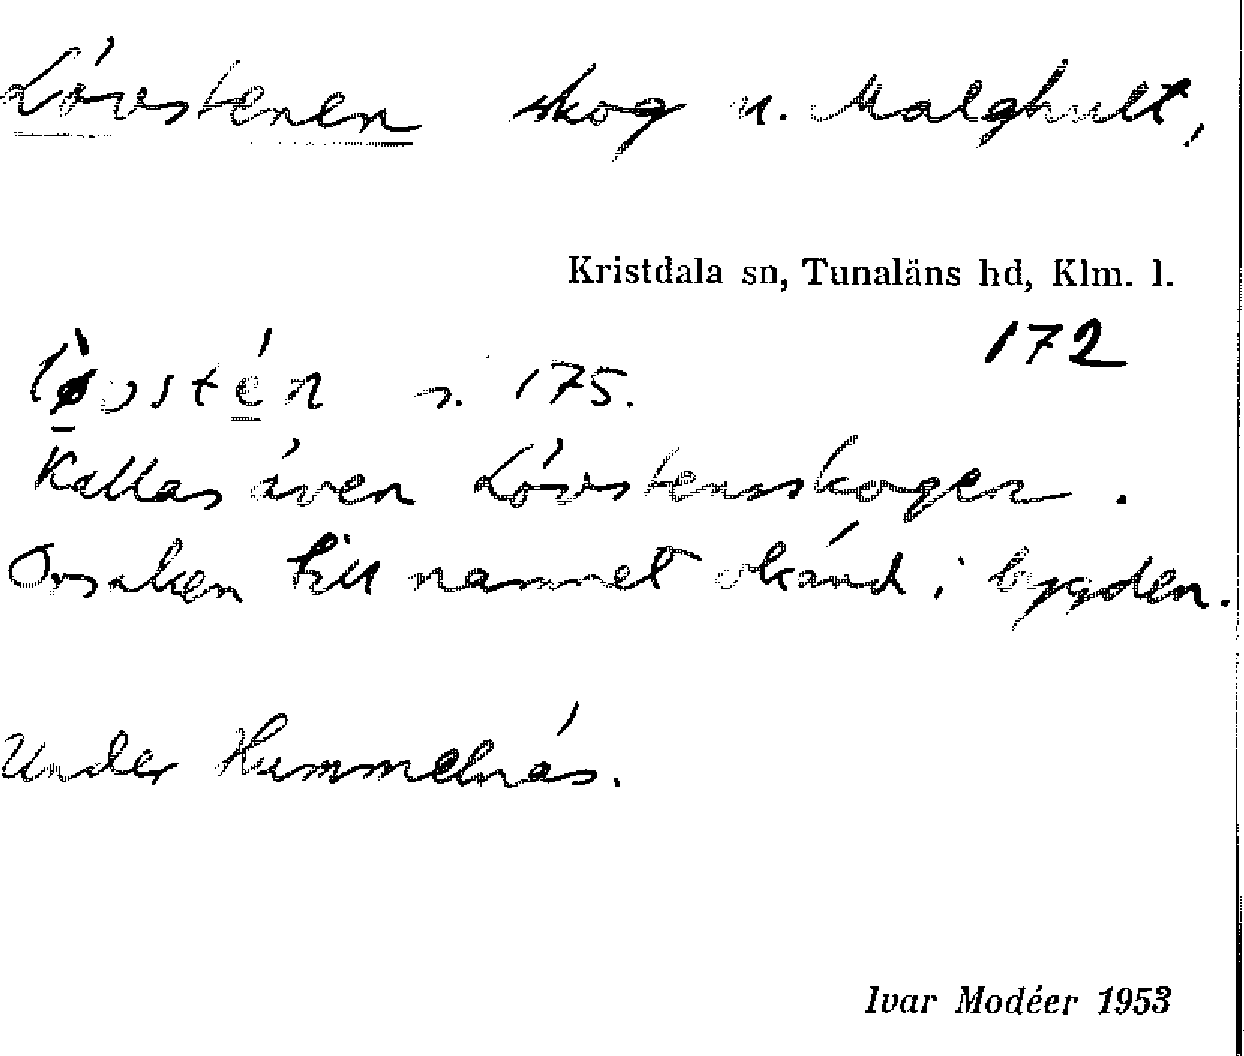 Lövstenen skog u. Malghult,
Kristdala sn, Tunaläns hd, Klm. l.
172
lø̀vstén s. 175.
Kallas även Lövstensskogen.
Orsaken till namnet okänd i bygden.
Under Hummelnäs.
Ivar Modéer 1953